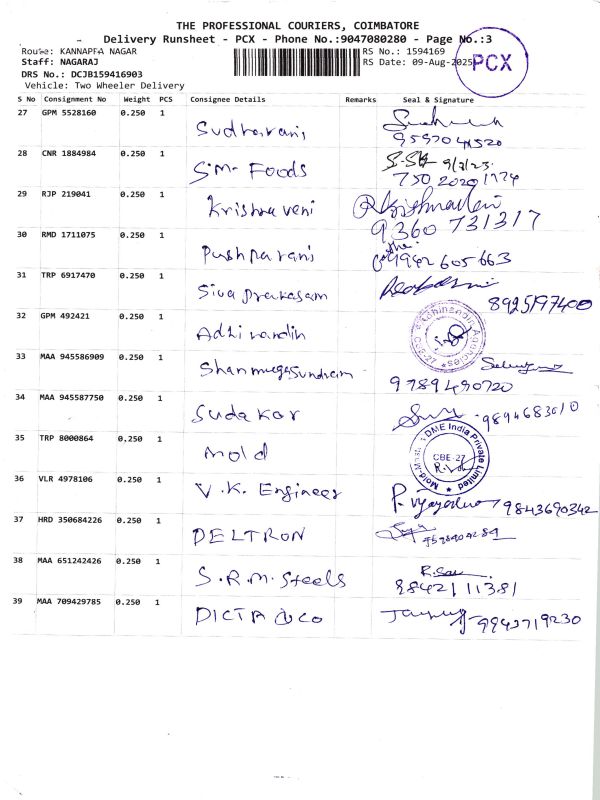 THE PROFESSIONAL COURIERS, COIMBATORE
Delivery Runsheet - PCX - Phone No.:9047080280 - Page No.:3
Route: KANNAPPA NAGAR RS No.: 1594169
Staff: NAGARAJ RS Date: 09-Aug-2025
PCX
DRS No.: DCJB159416903
Vehicle: Two Wheeler Delivery
S No Consignment No Weight PCS Consignee Details Remarks Seal & Signature
27 GPM 5528160 0.250 1 Sudharani
28 CNR 1884984 0.250 1 S.M- Foods
75020201774
29 RJP 219041 0.250 1 Krishna veni
9360 731317
30 RMD 1711075 0.250 1 Pushparani
9942605663
31 TRP 6917470 0.250 1 Siva prakasam
8925197400
32 GPM 492421 0.250 1 Adhinandin
33 MAA 945586909 0.250 1 Shanmugasundram
9789490720
34 MAA 945587750 0.250 1 Sudakar
9894683010
35 TRP 8000864 0.250 1 Mold
Mold-Mast DME India Private Limited
CBE-27
36 VLR 4978106 0.250 1 V.K. Engineer
9843690342
37 HRD 350684226 0.250 1 DELTRON
38 MAA 651242426 0.250 1 S.R.M. Steels
9842111381
39 MAA 709429785 0.250 1 DICTA & co
9943719230